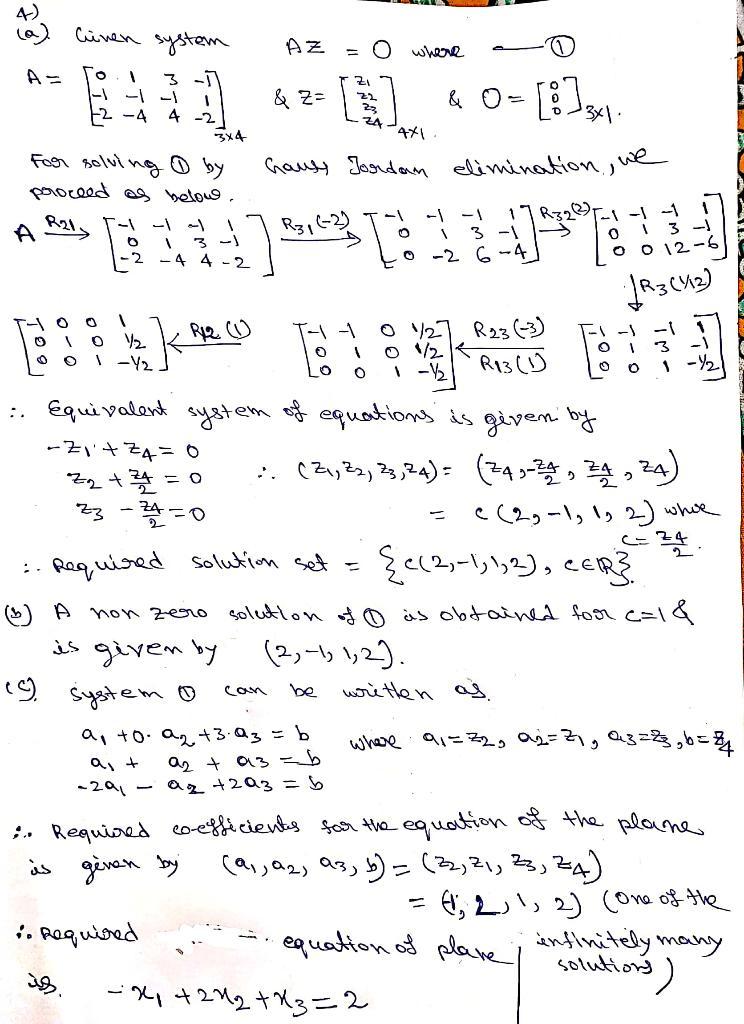 4)
(a) Given system AZ = O where —①
A = [0 1 3 -1; -1 -1 -1 1; -2 -4 4 -2]3x4 & Z = [z1; z2; z3; z4]4x1. & O = [0; 0; 0]3x1.
For solving ① by Gauss Jordan elimination, we
proceed as below.
A R21→ [-1 -1 -1 1; 0 1 3 -1; -2 -4 4 -2] R31(-2)→ [-1 -1 -1 1; 0 1 3 -1; 0 -2 6 -4] R32(2)→ [-1 -1 -1 1; 0 1 3 -1; 0 0 12 -6]
↓R3(1/12)
[-1 0 0 1; 0 1 0 1/2; 0 0 1 -1/2] ←R12(1) [-1 -1 0 1/2; 0 1 0 1/2; 0 0 1 -1/2] ←R23(-3) R13(1) [-1 -1 -1 1; 0 1 3 -1; 0 0 1 -1/2]
∴ Equivalent system of equations is given by
-z1 + z4 = 0
z2 + z4/2 = 0 ∴ (z1, z2, z3, z4) = (z4, -z4/2, z4/2, z4)
z3 - z4/2 = 0 = c(2, -1, 1, 2) whre
c = z4/2.
∴ Required solution set = {c(2,-1,1,2), c∈R}
(b) A non zero solution of ① is obtained for c=1 &
is given by (2,-1,1,2).
(c) system ① can be written as.
a1 + 0. a2 + 3. a3 = b
a1 + a2 + a3 = b where a1 = z2, a2 = z1, a3 = z3, b = z4
-2a1 - a2 + 2a3 = b
∴ Required co-efficients for the equation of the plane
is given by (a1, a2, a3, b) = (z2, z1, z3, z4)
= (-1, 2, 1, 2) (One of the
infinitely many
solutions)
∴ Required equation of plane
is. -x1 + 2x2 + x3 = 2